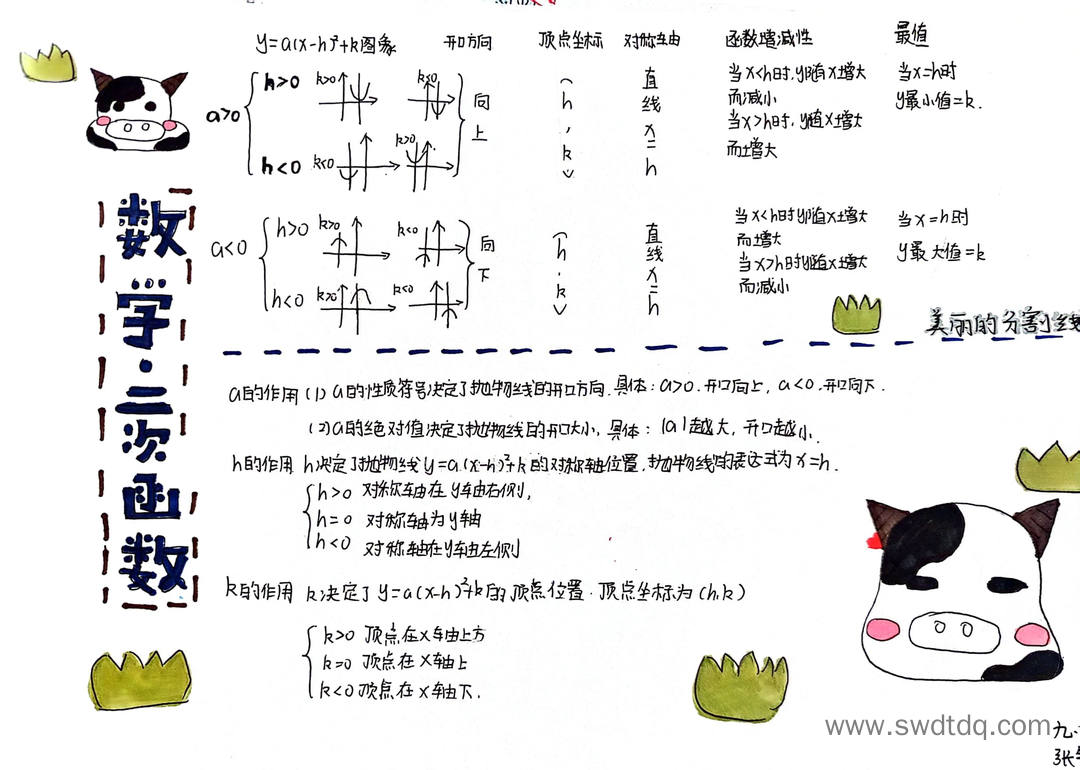 y=a(x-h)²+k图象 开口方向 顶点坐标 对称轴 函数增减性 最值
a>0 h>0 k>0 k<0 向上 (h,k) 直线x=h 当x<h时,y随x增大而减小 当x=h时
当x>h时,y随x增大而增大 y最小值=k.
h<0 k<0 k>0
a<0 h>0 k>0 k<0 向下 (h,k) 直线x=h 当x<h时y随x增大而增大 当x=h时
当x>h时y随x增大而减小 y最大值=k
h<0 k>0 k<0
数学·二次函数
美丽的分割线
a的作用 (1) a的性质符号决定了抛物线的开口方向.具体:a>0.开口向上, a<0.开口向下.
(2)a的绝对值决定了抛物线的开口大小,具体:|a|越大,开口越小.
h的作用 h决定了抛物线y=a(x-h)²+k的对称轴位置,抛物线的表达式为x=h.
h>0 对称轴在y轴右侧,
h=0 对称轴为y轴
h<0 对称轴在y轴左侧
k的作用 k决定了y=a(x-h)²+k的顶点位置.顶点坐标为(h,k)
k>0 顶点在x轴上方
k=0 顶点在x轴上
k<0 顶点在x轴下.
www.swdtdq.com
九.
张